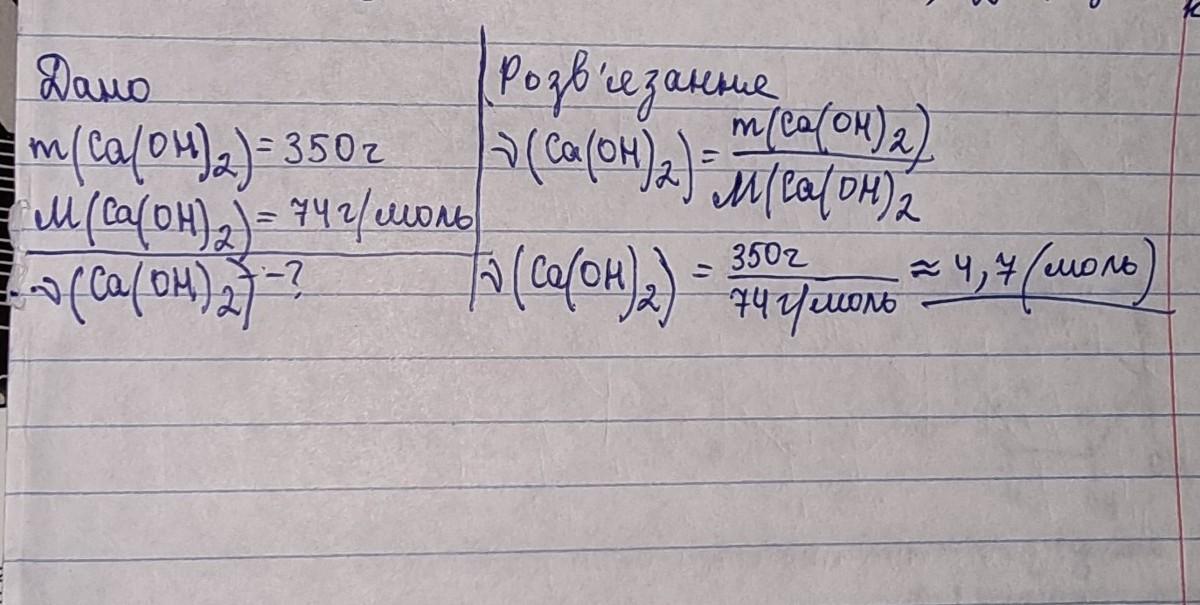 Дано
m(Ca(OH)₂) = 350г
M(Ca(OH)₂) = 74 г/моль
ν(Ca(OH)₂) - ?
Розв'язання
ν(Ca(OH)₂) = m(Ca(OH)₂) / M(Ca(OH)₂
ν(Ca(OH)₂) = 350г / 74 г/моль ≈ 4,7 (моль)